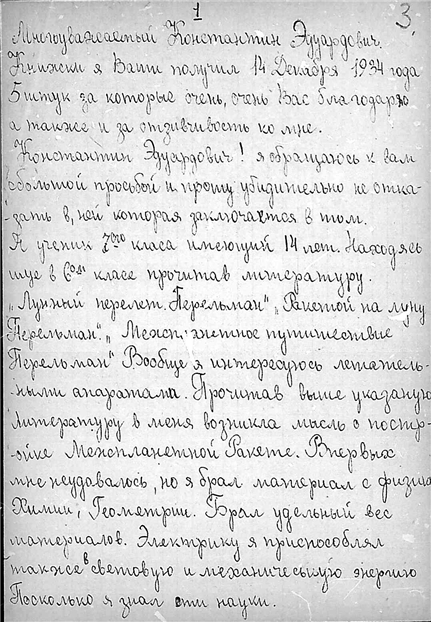 1
3.
Многоуважаемый Константин Эдуардович.
Книжки я Ваши получил 14 Декабря 1934 года
5 штук за которые очень, очень Вас благодарю
а также и за отзивчивость ко мне.
Константин Эдуардович! я обращаюсь к вам
с большой просьбой и прошу убидительно не отка-
зать в, ней которая заключается в том.
Я ученик 7ого класа имеющий 14 лет. Находясь
ище в 6ом классе прочитав литературу.
„Лунный перелет. Перельман" „Ракетой на луну
Перельман". „Межпланетное путишествие
Перельман" Вообще я интересуюсь летатель-
-ными апаратама. Прочитав выше указаную
литературу в меня возникла мысль о постр-
-ойке Межпланетной Ракете. Впервых
мне неудавалось, но я брал материал с физики
Химии, Геометрии. Брал удельный вес
материалов. Электрику я приспособлял
также в световую и механическую энергию
Посколько я знал эти науки.